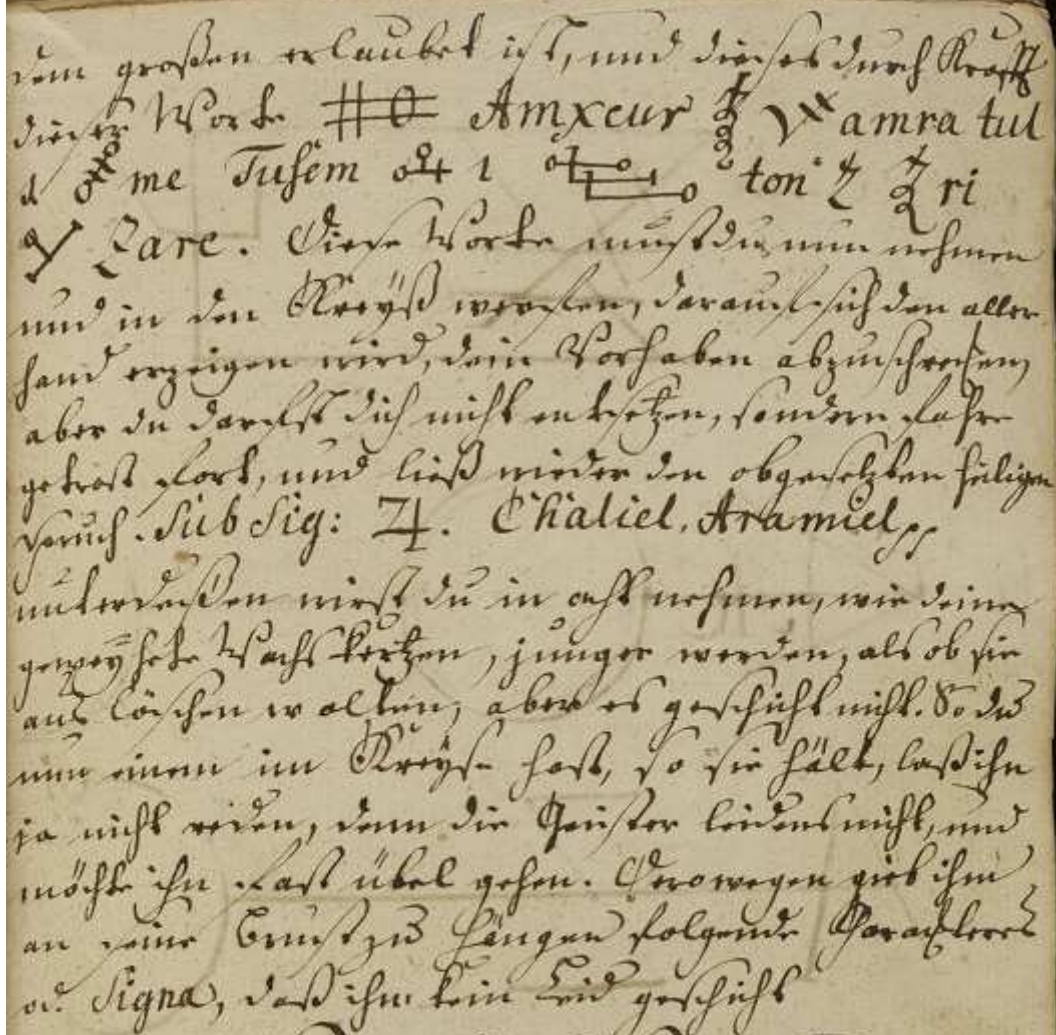 dem großen erlaubet ist, und dieses durch Krafft
dieser Worte Amxeur amra tul
me Tusem 1 ton ri
Zare. Diese Worte mustdu nun nehmen
und in den Kreyß werffen, darauf sich den aller
hand erzeigen wird, dein Vorhaben abzuschrecken,
aber du darffst dich nicht entsetzen, sondern fahre
getrost fort, und ließ wieder den obgesetzten heiligen
spruch. Sub Sig: ♃. Chaliel, Aramiel
unterdeßen wirst du in acht nehmen, wie deine
geweyhete Wachs kertzen, junger werden, als ob sie
aus löschen wolten, aber es geschicht nicht. So du
nun einem im Kreyse hast, so sie hält, laß ihn
ja nicht reden, denn die Geister leidens nicht, und
möchte ihn fast übel gehen. Derowegen gieb ihm
an seine Brust zu hängen folgende Characteres
od. Signa, daß ihm kein Leid geschicht